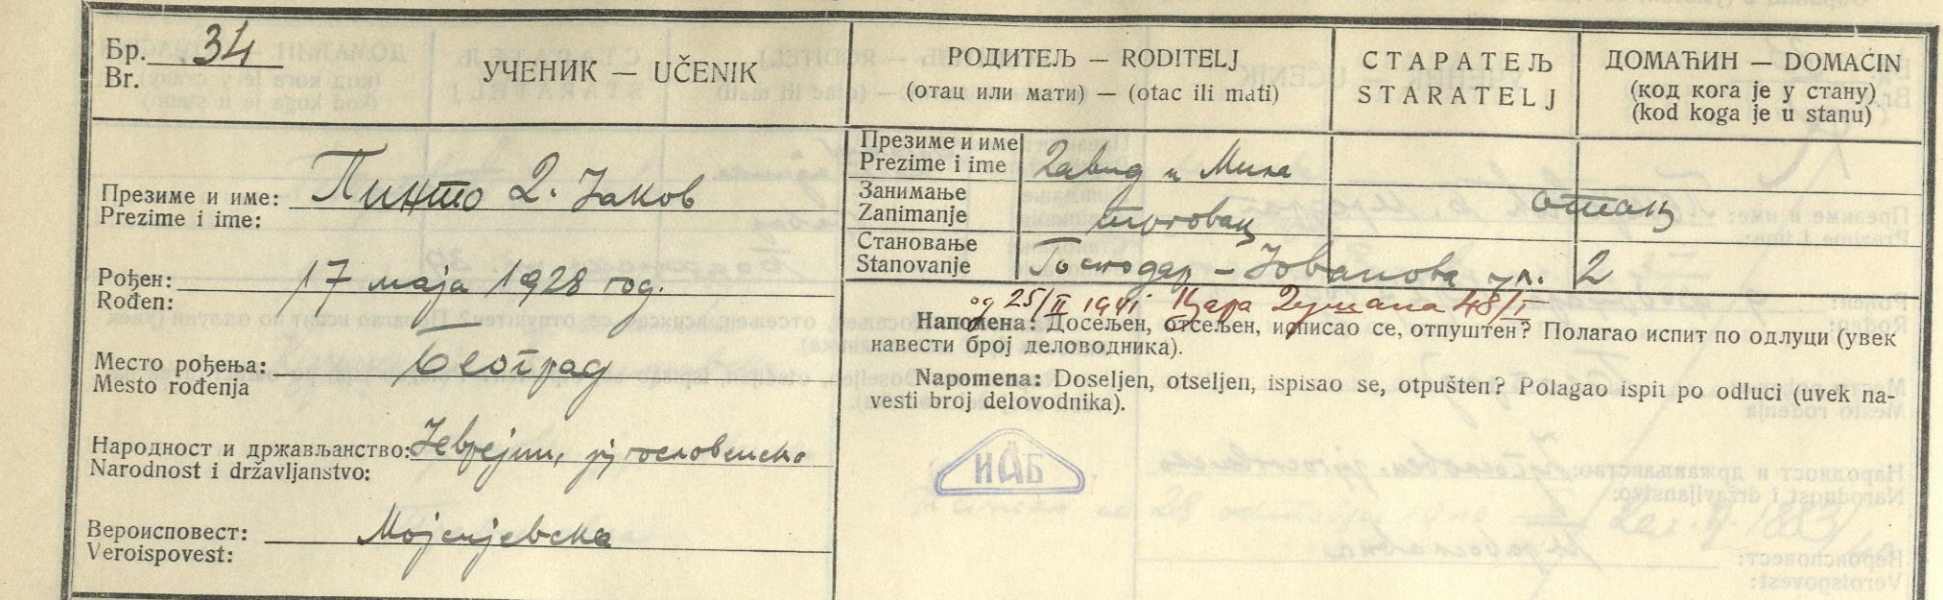 Бр. 34
Br.
УЧЕНИК — UČENIK
РОДИТЕЉ — RODITELJ
(отац или мати) — (otac ili mati)
СТАРАТЕЉ
STARATELJ
ДОМАЋИН — DOMAĆIN
(код кога је у стану)
(kod koga je u stanu)
Презиме и име: Пинто Д. Јаков
Prezime i ime:
Рођен: 17 маја 1928 год.
Rođen:
Место рођења: Београд
Mesto rođenja
Народност и држављанство: Јеврејин, југословенско
Narodnost i državljanstvo:
Вероисповест: Мојсијевска
Veroispovest:
Презиме и име
Prezime i ime Давид и Мина
Занимање
Zanimanje трговац отац
Становање
Stanovanje Господар-Јованова ул. 2
од 25/II 1941 Цара Душана 48/I
Напомена: Досељен, отсељен, исписао се, отпуштен? Полагао испит по одлуци (увек
навести број деловодника).
Napomena: Doseljen, otseljen, ispisao se, otpušten? Polagao ispit po odluci (uvek na-
vesti broj delovodnika).
ИАБ